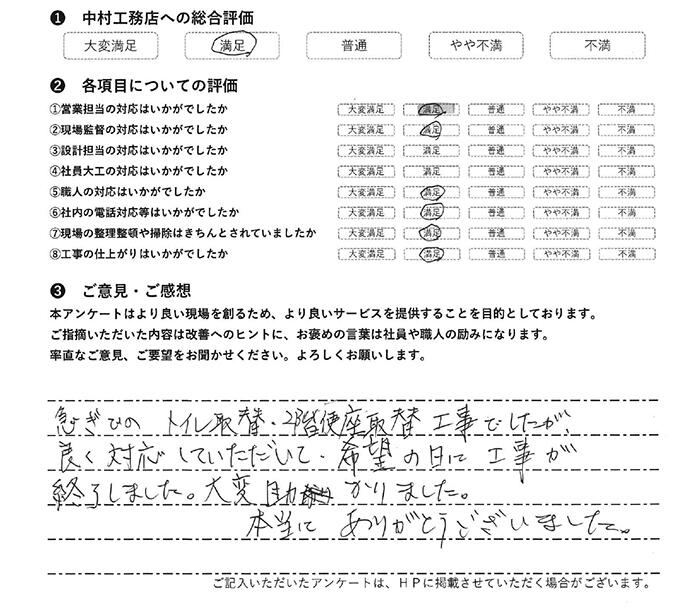 ❶ 中村工務店への総合評価
大変満足 満足 普通 やや不満 不満
❷ 各項目についての評価
①営業担当の対応はいかがでしたか 大変満足 満足 普通 やや不満 不満
②現場監督の対応はいかがでしたか 大変満足 満足 普通 やや不満 不満
③設計担当の対応はいかがでしたか 大変満足 満足 普通 やや不満 不満
④社員大工の対応はいかがでしたか 大変満足 満足 普通 やや不満 不満
⑤職人の対応はいかがでしたか 大変満足 満足 普通 やや不満 不満
⑥社内の電話対応等はいかがでしたか 大変満足 満足 普通 やや不満 不満
⑦現場の整理整頓や掃除はきちんとされていましたか 大変満足 満足 普通 やや不満 不満
⑧工事の仕上がりはいかがでしたか 大変満足 満足 普通 やや不満 不満
❸ ご意見・ご感想
本アンケートはより良い現場を創るため、より良いサービスを提供することを目的としております。
ご指摘いただいた内容は改善へのヒントに、お褒めの言葉は社員や職人の励みになります。
率直なご意見、ご要望をお聞かせください。よろしくお願いします。
急ぎの トイレ取替・2階便座取替 工事でしたが、
良く対応していただいて・希望の日に工事が
終了しました。大変助かりました。
本当に ありがとうございました。
ご記入いただいたアンケートは、HPに掲載させていただく場合がございます。